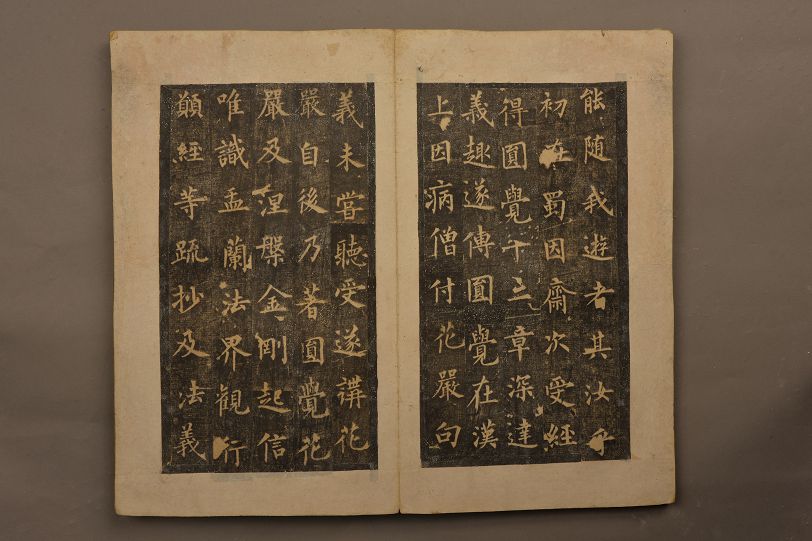 能随我遊者其汝乎
初在蜀因齋次受經
得圓覺十三章深達
義趣遂傳圓覺在漢
上因病僧付花嚴句
義未嘗聽受遂講花
嚴自後乃著圓覺花
嚴及涅槃金剛起信
唯識盂蘭法界觀行
願經等疏抄及法義